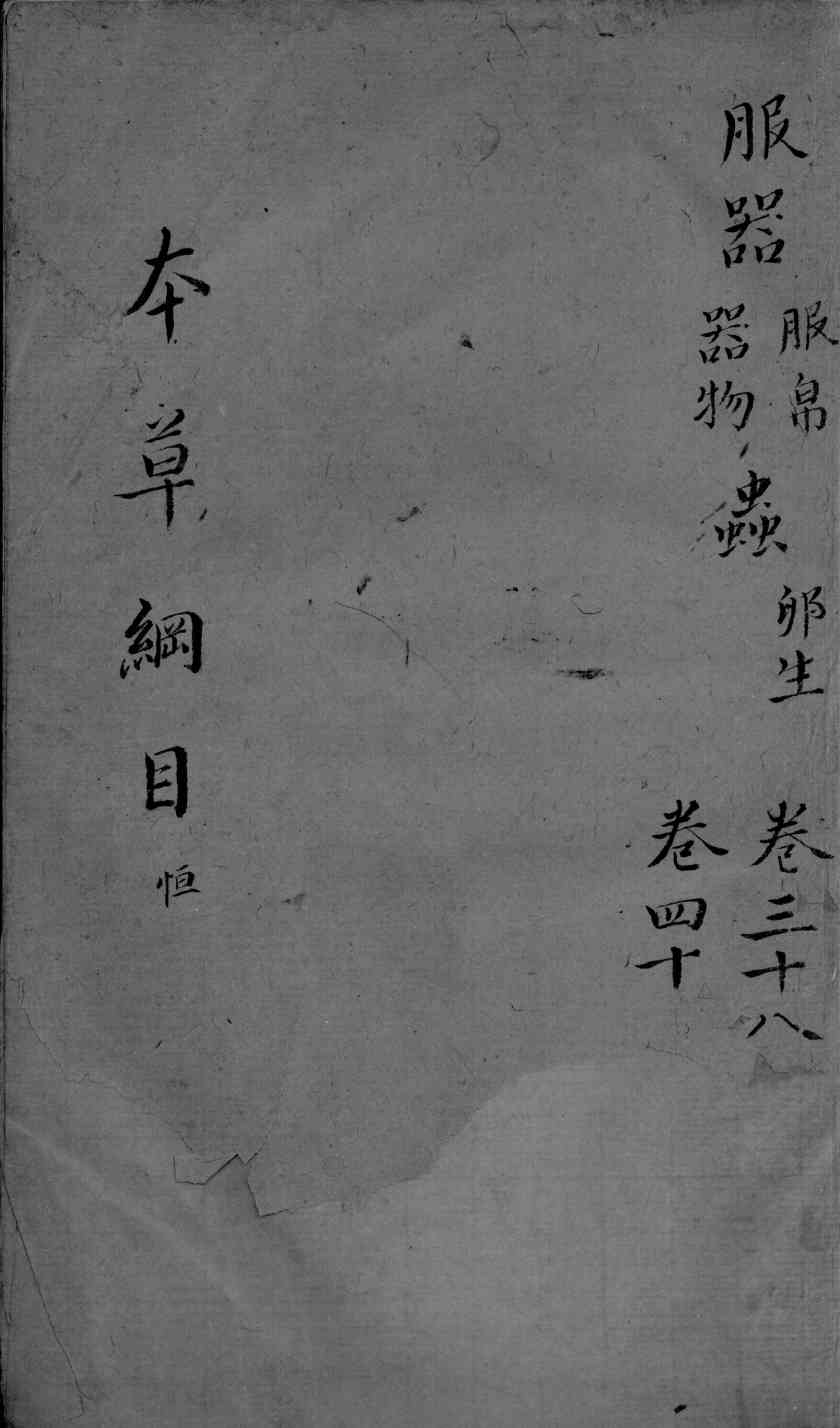 服器 服帛
器物 蟲 卵生
卷三十八
卷四十
本草綱目 恒